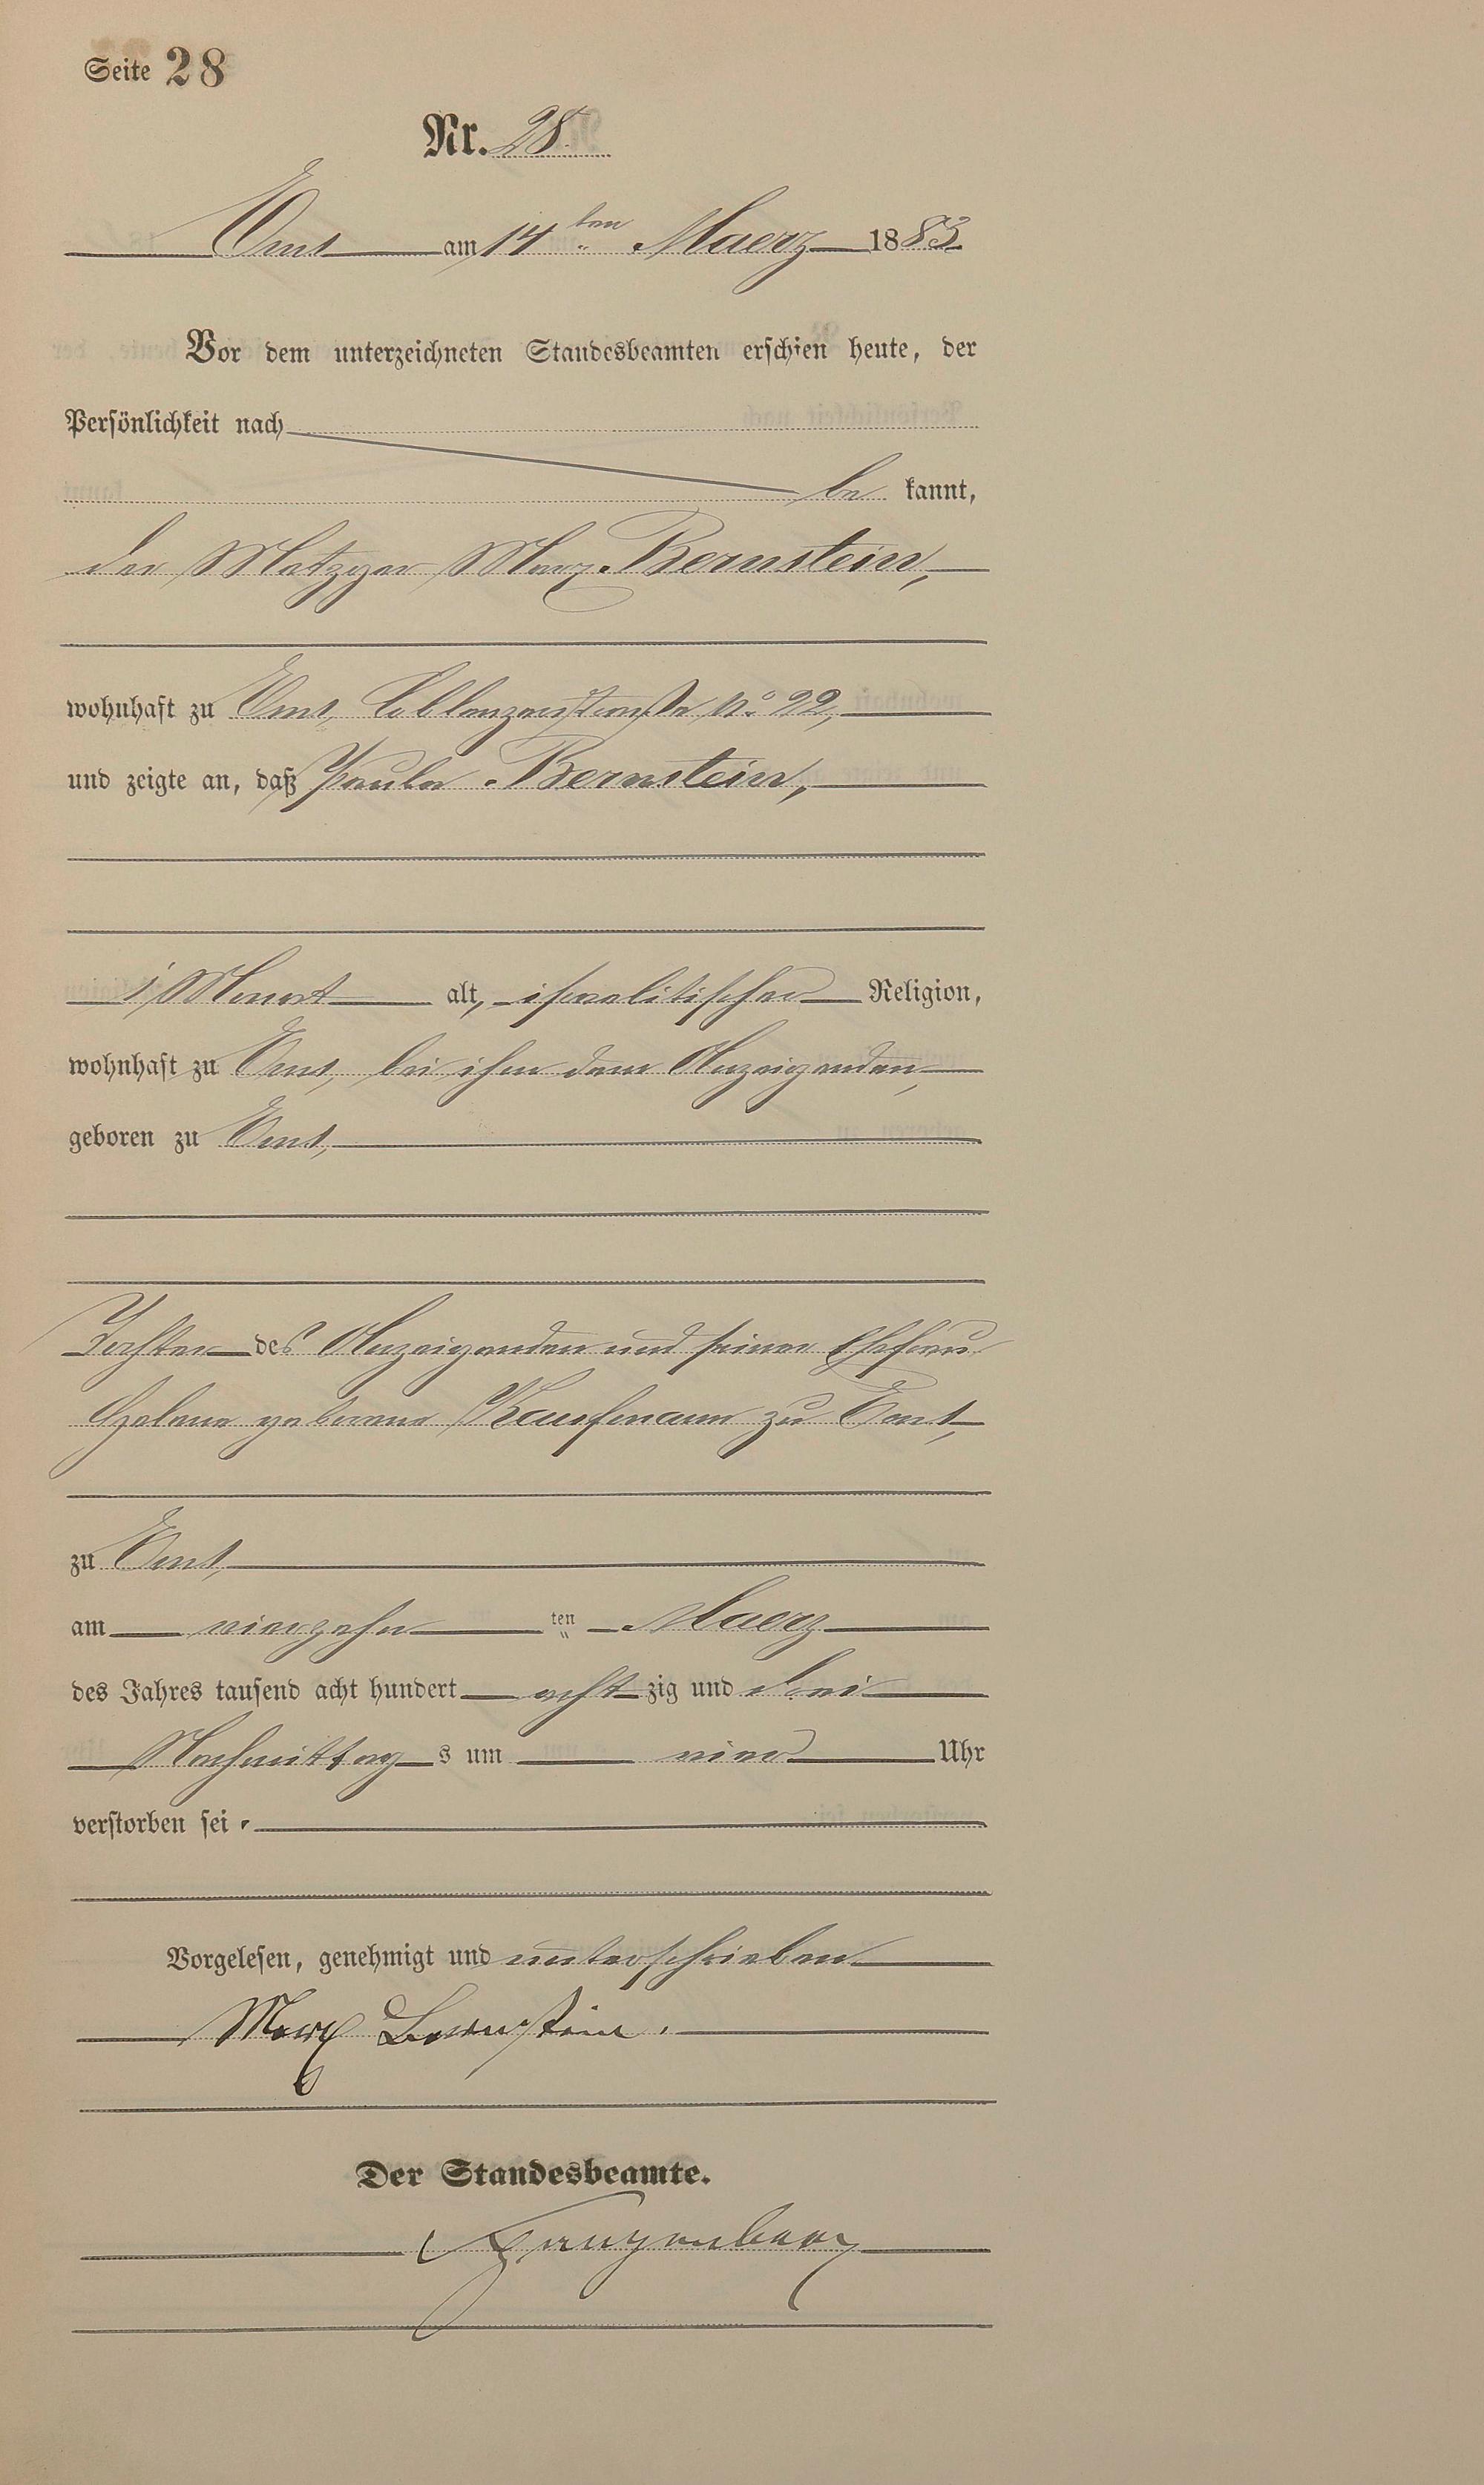 Seite 28
Nr. 28.
Ems am 14ten Maerz 1883
Vor dem unterzeichneten Standesbeamten erschien heute, der
Persönlichkeit nach
be kannt,
der Metzger Marx Bernstein,
wohnhaft zu Ems, Coblenzerstraße No 22,
und zeigte an, daß Paula Bernstein,
1 Monat alt, israelitischer Religion,
wohnhaft zu Ems, bei ihm dem Anzeigenden,
geboren zu Ems,
Tochter des Anzeigenden und seiner Ehefrau
Helene geborene Kaufmann zu Ems,
zu Ems,
am vierzehn ten Maerz
des Jahres tausend acht hundert acht zig und drei
Nachmittag s um vier Uhr
verstorben sei.
Vorgelesen, genehmigt und unterschrieben
Marx Bernstein.
Der Standesbeamte.